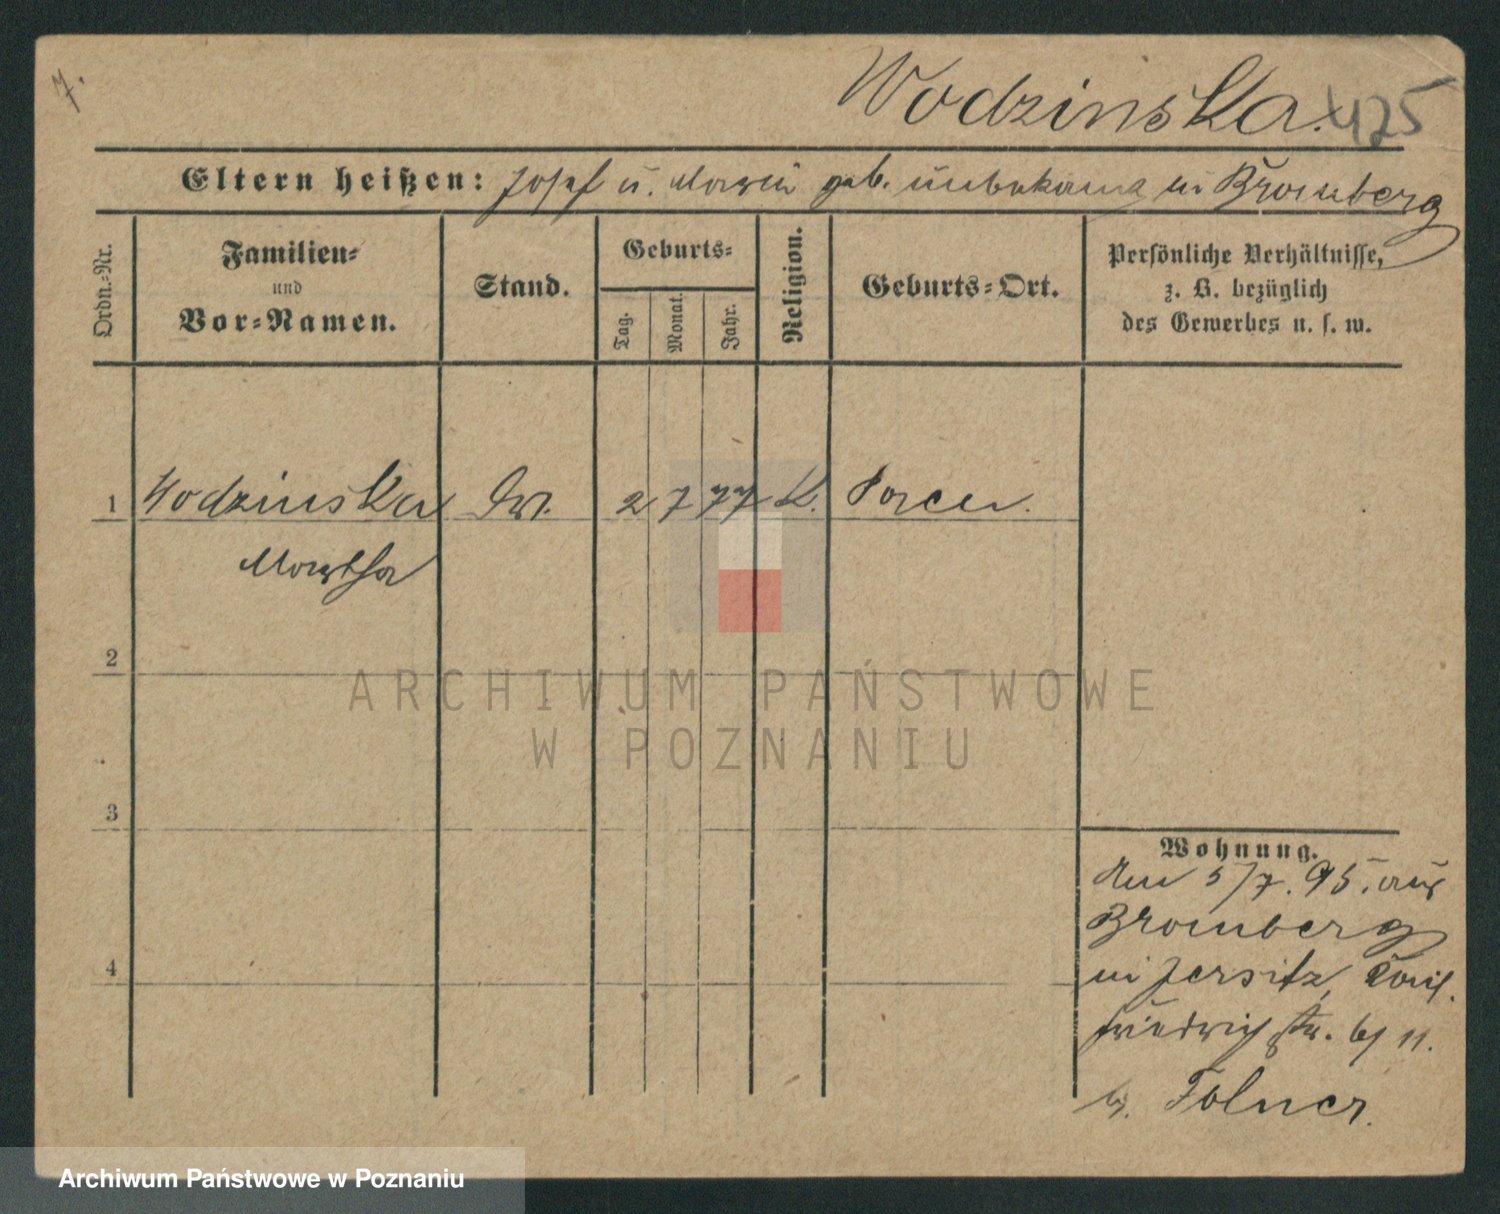 7.
Wodzinska. 425
Eltern heißen: Josef u. Marie geb. unbekannt in Bromberg
Ordn.-Nr.
Familien-
und
Vor-Namen.
Stand.
Geburts-
Tag.
Monat.
Jahr.
Religion.
Geburts-Ort.
Persönliche Verhältnisse,
z. B. bezüglich
des Gewerbes u. s. w.
1 Wodzinska 2 7 77 K.
Martha
2
ARCHIWUM PAŃSTWOWE
W POZNANIU
3
4
Wohnung.
den 5/7. 95. aus
Bromberg
in Jersitz,
Friedrichstr. 11.
b. Tolner.
Archiwum Państwowe w Poznaniu